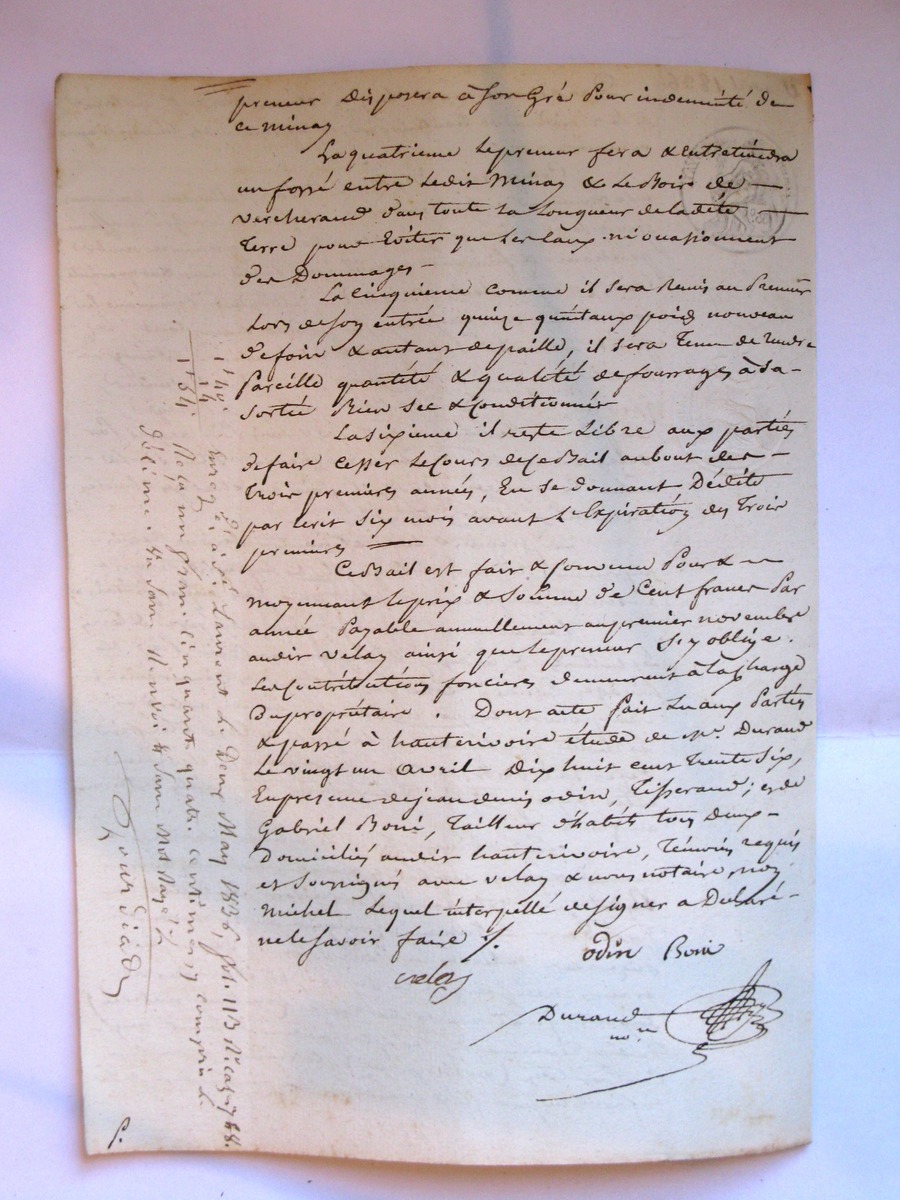 preneur disposera à Son Gré Pour indemnité de
ce minay
La quatrieme Le preneur fera & Entretiendra
un fossé entre Ledit Minay & Le Bois de
vercherand dans toute sa Longueur de ladite
Terre pour Eviter que Les Eaux n'i ocasionnent
des Dommages
La Cinquieme comme il sera Remis au Preneur
Lors de Son entrée quinze quintaux poids nouveau
de foin & autant de paille, il sera Tenu de rendre
Pareille quantité & qualité de fourrages à Sa
sortie Bien Sec & Conditionnés
La Sixieme il reste Libre aux parties
de faire Cesser Le Cours de Ce Bail au bout des
Trois premieres années, En se donnant Dédite
par Ecrit Six mois avant L'Expiration des Trois
premieres
Ce Bail est fait & Convenu Pour &
moyennant le prix & Somme de Cent francs Par
année Payable annuellement au premier novembre
audit Velay ainsi que le preneur S'y oblige.
Les Contributions foncieres demeurent à la Charge
Du propriétaire. Dont acte fait Lu aux Parties
& passé à hauterivoire étude de Me. Durand
Le vingt un avril Dix huit cent Trente Six,
En presence de jean denis odin, Tisserand; et de
Gabriel Boni, Tailleur d'habits tous Deux
Domiciliés audit hauterivoire, Témoins requis
et Soussignés avec velay & nous notaire, non
Michel Lequel interpellé de signer a Déclaré
ne le Savoir faire ./.
odin Boni
velay
Durand
no.re
1f 40.
14
1f 54
à St Laurent Le Deux May 1836, fol. 113
Reçu un franc cinquante quatre centimes y compris le
décime.